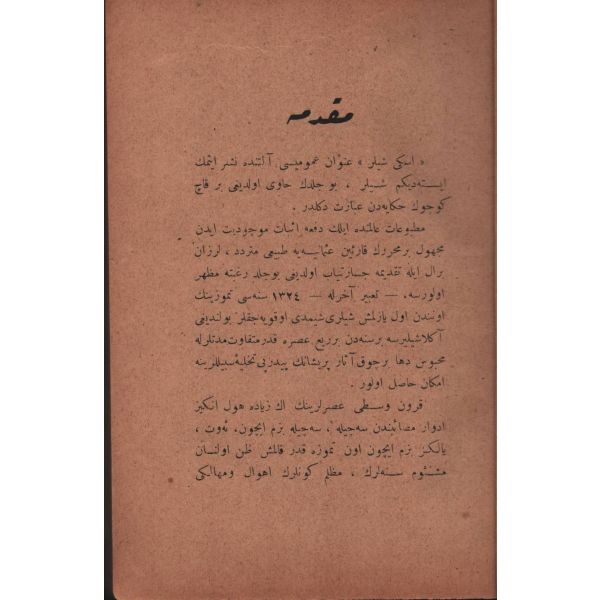 مقدمه
« اسكى شيلر » عنوان عموميسى آلتنده نشر ايتمك
ايسته‌ديكم شيلر ، بو جلدك حاوى اولديغى بر قاچ
كوچوك حكايه‌دن عبارت دكلدر .
مطبوعات عالمنده ايلك دفعه اثبات موجوديت ايدن
مجهول بر محررك قارئين عثمانيه‌يه طبيعى متردد ، لرزان
بر ال ايله تقديمه جسارتياب اولديغى بو جلد رغبته مظهر
اولورسه، — تعبير آخرله — ١٣٢٤ سنه‌سى تموزينك
اونندن اول يازلمش شيلرى شيمدى اوقويه‌جقلر بولنديغى
آكلاشيليرسه بر سنه‌دن بر ربع عصره قدر متفاوت مدتلرله
محبوس دها بر چوق آثار پريشانك پيدرپى تخليۀ سبيللرينه
امكان حاصل اولور .
قرون وسطى عصرلرينك اك زياده هول انكيز
ادوار مصائبندن سه‌چيله ، سه‌چيله بزم ايچون، ئه‌وت ،
يالكز بزم ايچون اون تموزه قدر قالمش ظن اولنان
مشئوم سنه‌لرك ، مظلم كونلرك اهوال ومهالكى